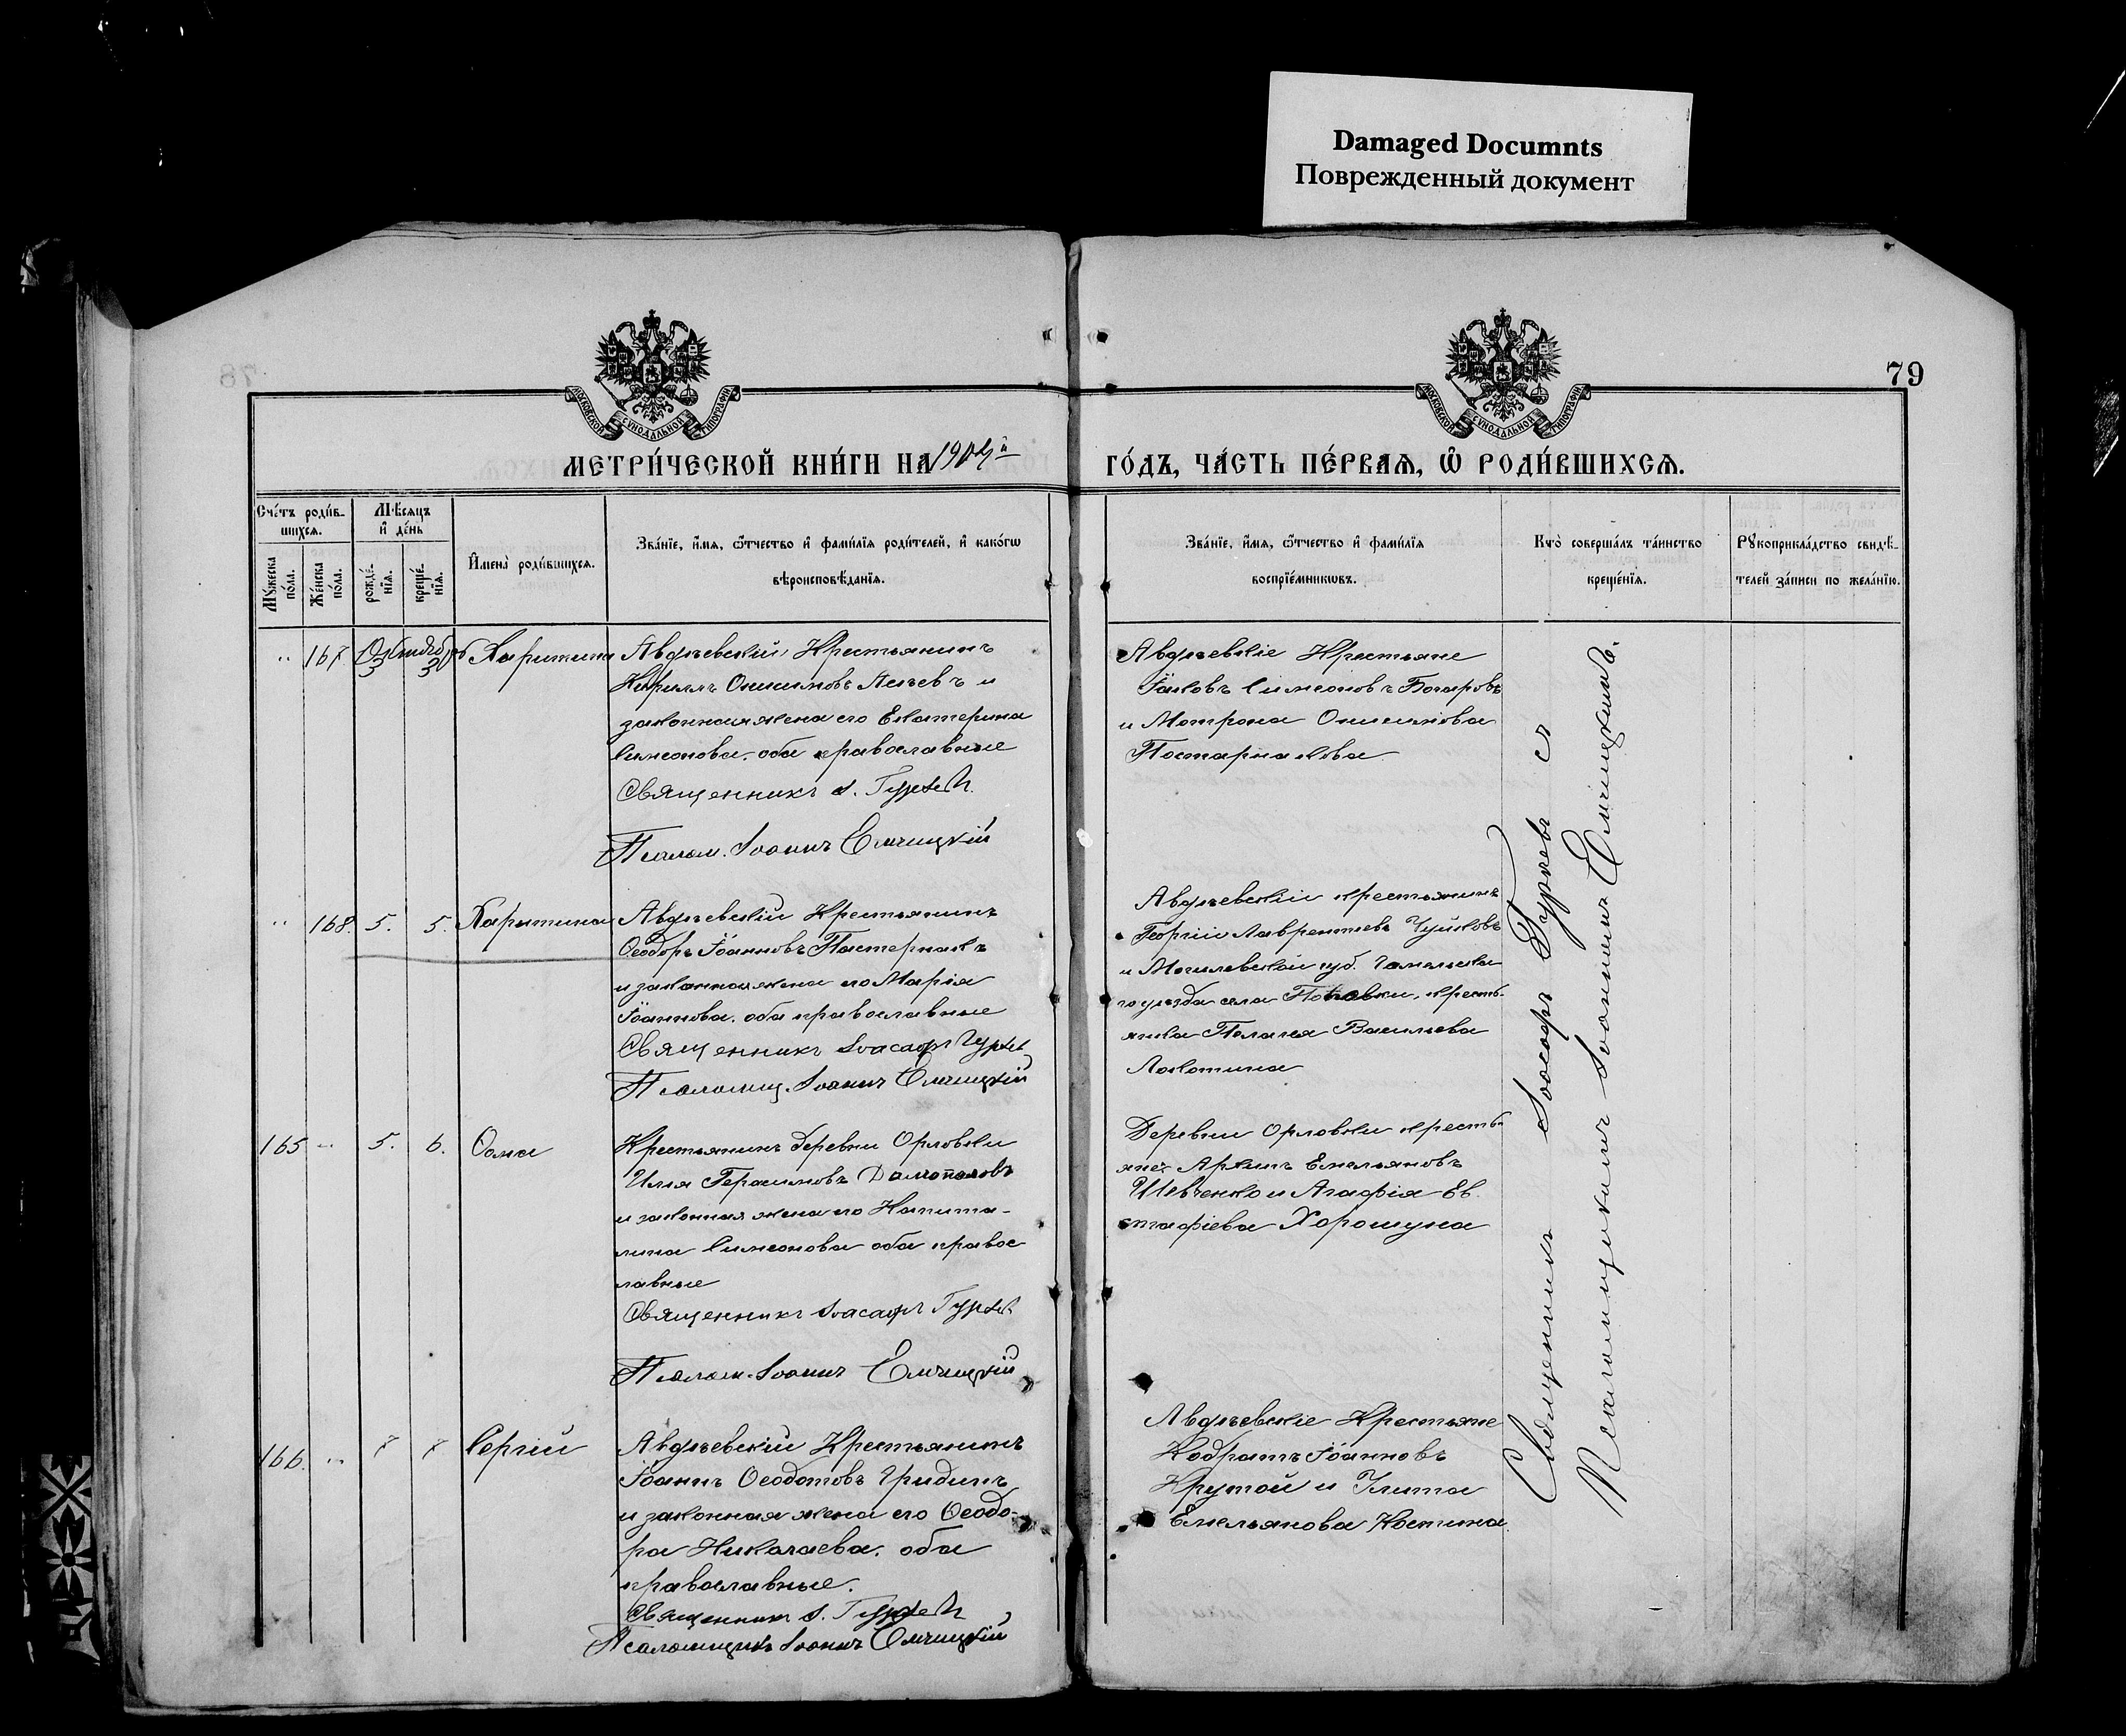 Damaged Documnts
Поврежденный документ
79
МЕТРИ́ЧЕСКОЙ КНИ́ГИ НА 1904й ГО́ДЪ, ЧА́СТЬ ПЕ́РВАѦ, Ѡ҆ РОДИ́ВШИХСѦ.
МОСКОВСКОЙ СѴНОДАЛЬНОЙ ТИПОГРАФІИ
МОСКОВСКОЙ СѴНОДАЛЬНОЙ ТИПОГРАФІИ
Сче́тъ роди́в-
шихсѧ.
Мꙋжеска по́ла.
Же́нска по́ла.
Мѣ́сѧцъ
и҆ де́нь
рожде́-
нїѧ.
креще́-
нїѧ.
И҆мена̀ роди́вшихсѧ.
Зва́нїе, и҆́мѧ, ѻ҆́тчество и҆ фами́лїѧ роди́телей, и҆ како́гѡ
вѣроисповѣ́данїѧ.
Зва́нїе, и҆́мѧ, ѻ҆́тчество и҆ фами́лїѧ
воспрїе́мникѡвъ.
Кто̀ соверша́лъ та́инство
креще́нїѧ.
Рꙋкоприкла́дство свидѣ́-
телей за́писи по жела́нїю.
" 167 Октября 3 3 Харитина
Авдѣевскій Крестьянинъ
Кириллъ Онисимовъ и
законная жена его Екатерина
Симеонова, оба православные
Священникъ І. Гурьевъ
Псалом. Іоаннъ Емчицкій
Авдѣевскіе Крестьяне
Іаковъ Симеоновъ Бочаровъ
и Матрона Онисимова
Постарнакова
" 168. 5. 5. Харитина
Авдѣевскій Крестьянинъ
Ѳеодоръ Іоанновъ Пастернакъ
и законная жена его Марія
Іоаннова, оба православные
Священникъ Іоасафъ Гурьев
Псаломщ. Іоаннъ Емчицкій
Авдѣевскій крестьянинъ
Георгій Лаврентіевъ Чуйковъ
и Могилевской губ. Гомельска
го уѣзда села Поповки, кресть-
янка Пелагея Васильева
Локотина
165 " 5. 6. Ѳома
Крестьянинъ деревни Орловки
Илія Герасимовъ Домопаловъ
и законная жена его Капито-
лина Симеонова оба правос
лавные
Священникъ Іоасафъ Гурьев
Псалом. Іоаннъ Емчицкій
Деревни Орловки кресть-
яне Архипъ Емельяновъ
Шевченко и Агафія Ев
стафіева Хорошуна
166. " 7 7 Сергій
Авдѣевскій Крестьянинъ
Іоаннъ Ѳеодотовъ Гридинъ
и законная жена его Ѳеодо-
ра Николаева, оба
православные.
Священникъ І. Гурьевъ
Псаломщикъ Іоаннъ Емчицкій
Авдѣевскіе Крестьяне
Кодратъ Іоанновъ
Крутой и Улита
Емельянова Костина
Священникъ Іоасафъ Гурьевъ съ
Псаломщикомъ Іоанномъ Емчицкимъ.